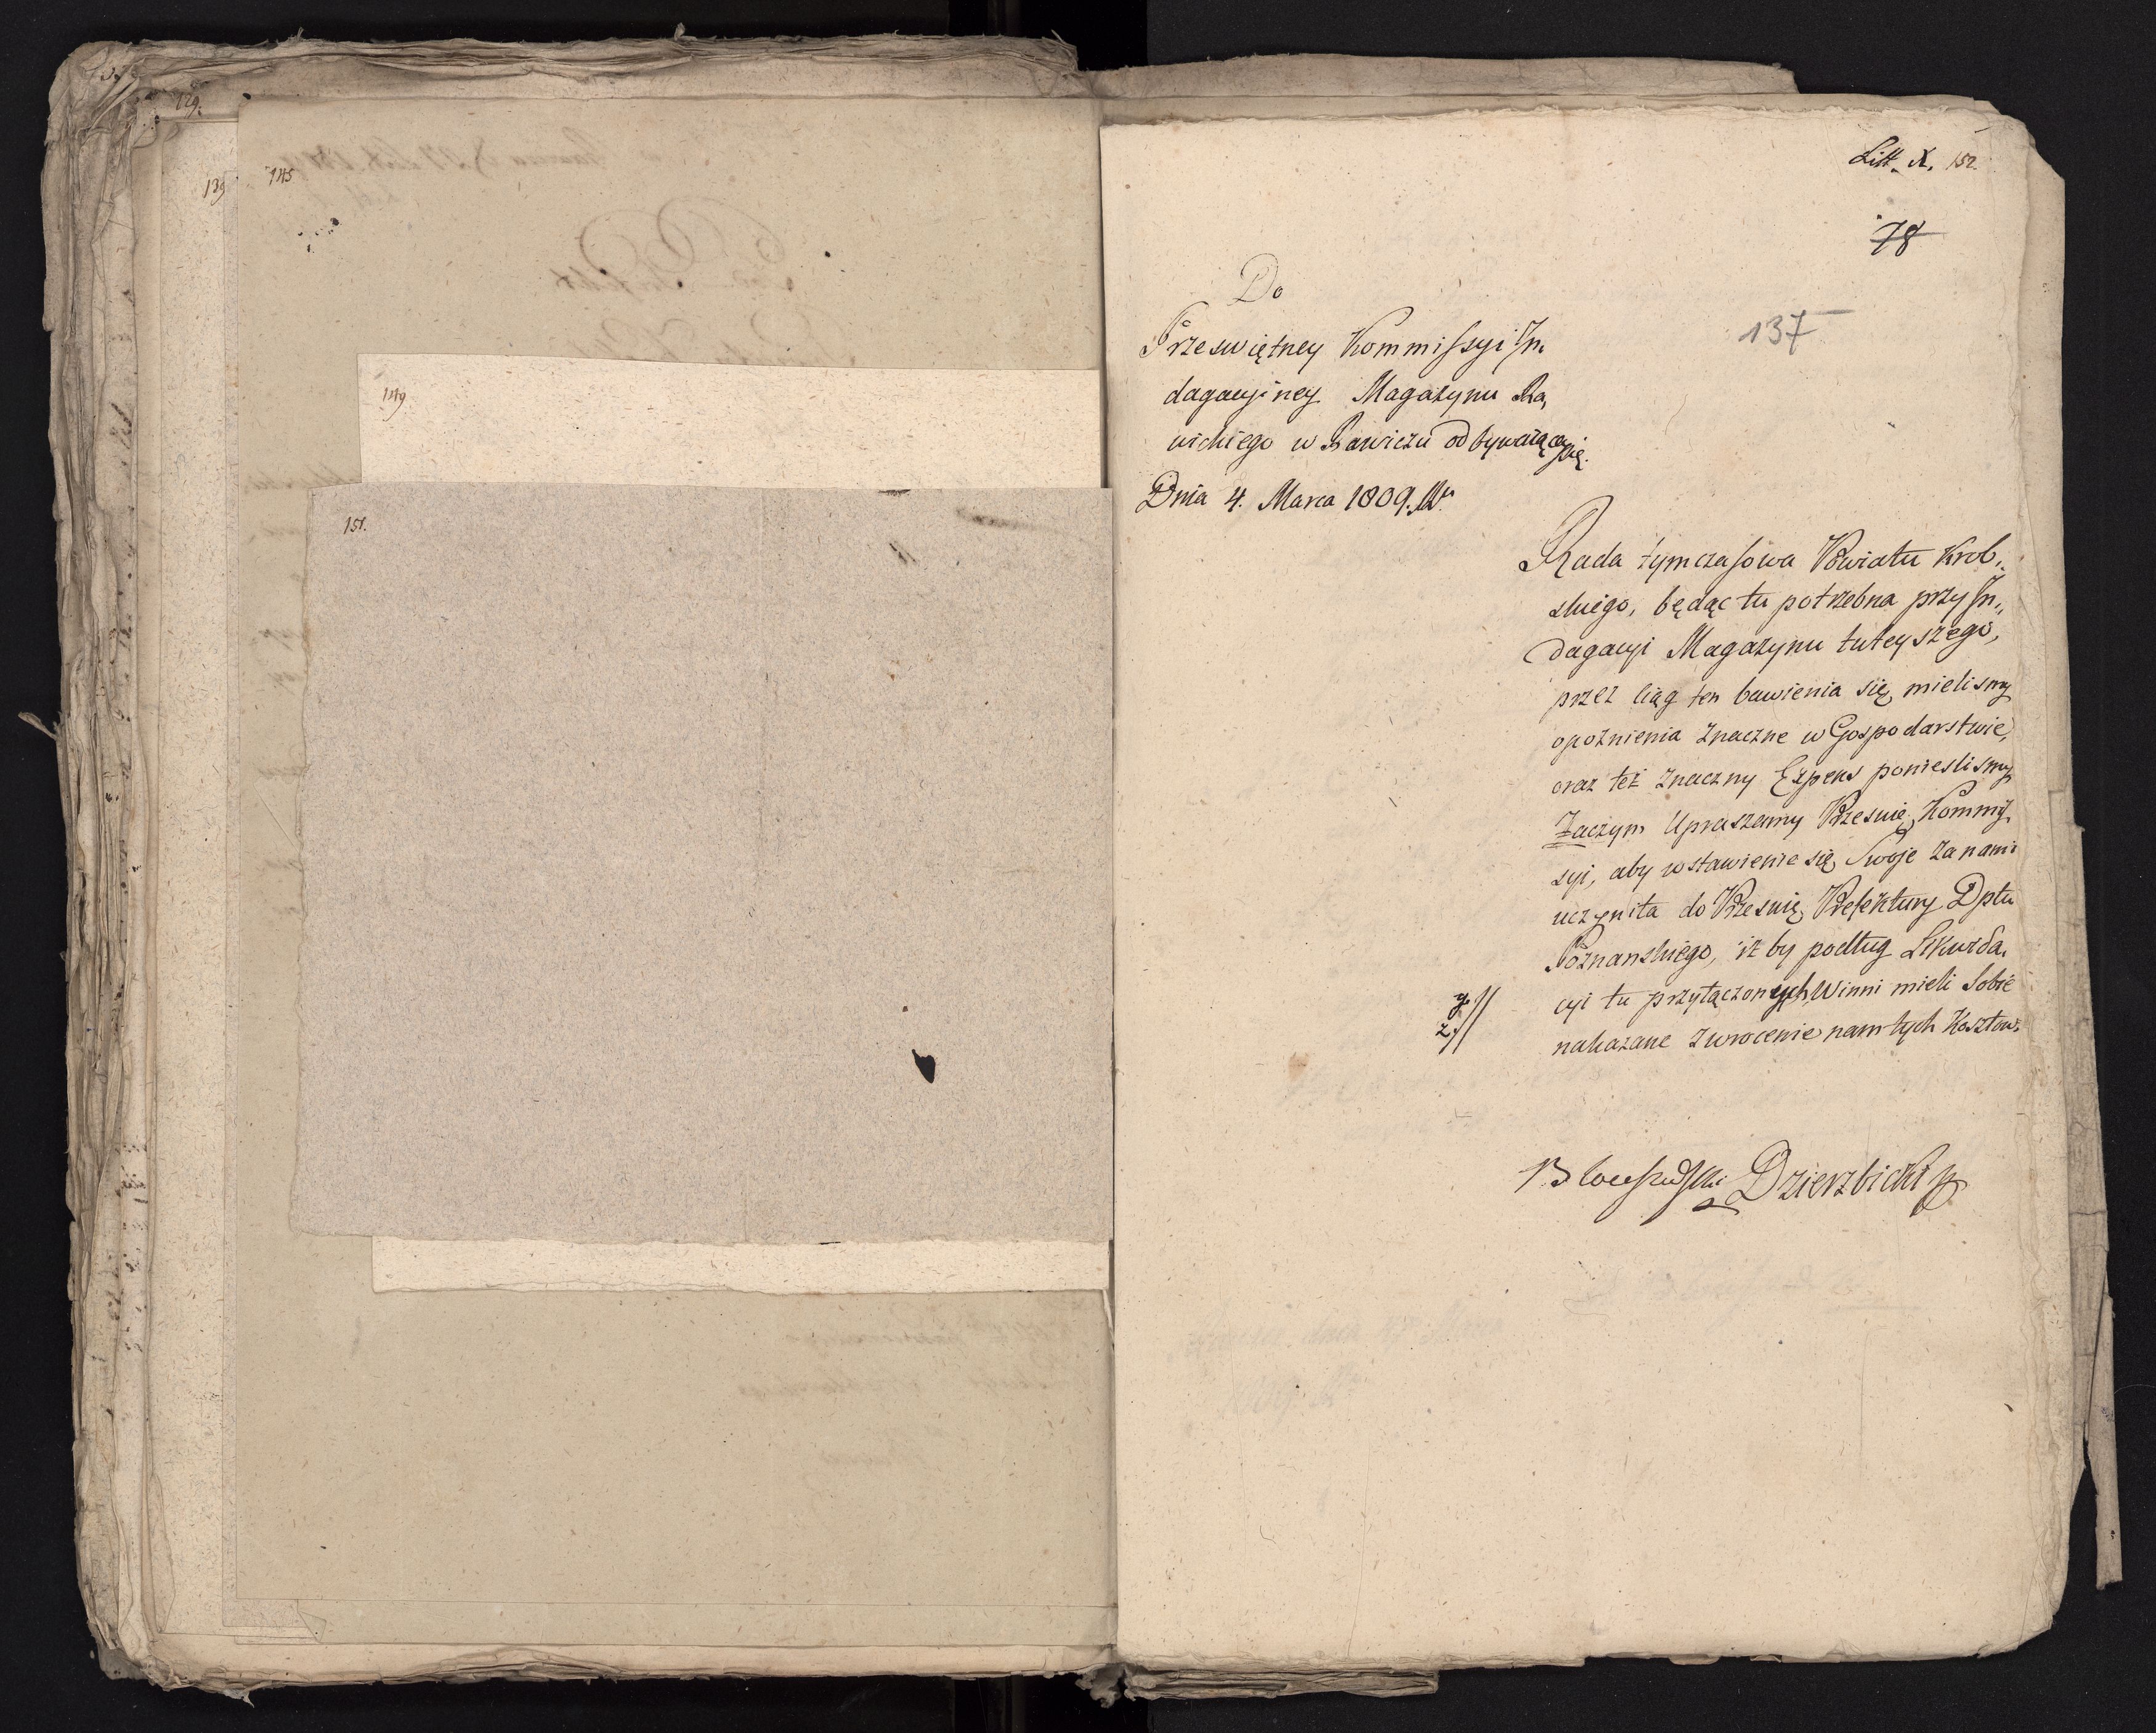 129.
139
145
149
151.
Litt. X. 152.
78
137
Do
Przeświętney Kommissyi In,
dagacyiney Magazynu Ra,
wickiego w Rawiczu odbywaiącey się.
Dnia 4. Marca 1809. Ru
Rada tymczasowa Powiatu Krob,,
skiego, będąc tu potrzebna przy In,,
dagacyi Magazynu tuteyszego,
przez ciąg ten bawienia się, mielismy
opoznienia znaczne w Gospodarstwie,
oraz też znaczny Expens ponieslismy
Zaczym Upraszamy Przeswię, Kommis,
syi, aby wstawienie się Swoje za nami
uczyniła do Przeswię, Prefektury Dptu
Poznanskiego, iż by podług Likwida,
y.//
cyi tu przyłączonych, Winni mieli Sobie
z.//
nakazane zwrocenie nam tych Kosztow.
Dzierzbicki